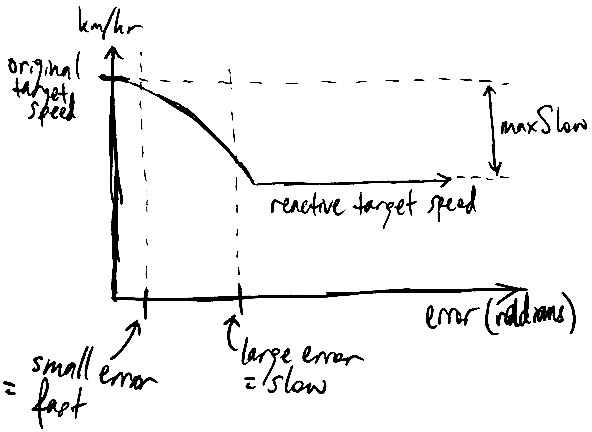 km/hr
original
target
speed
maxSlow
reactive target speed
error (radians)
small error
= fast
large error
= slow